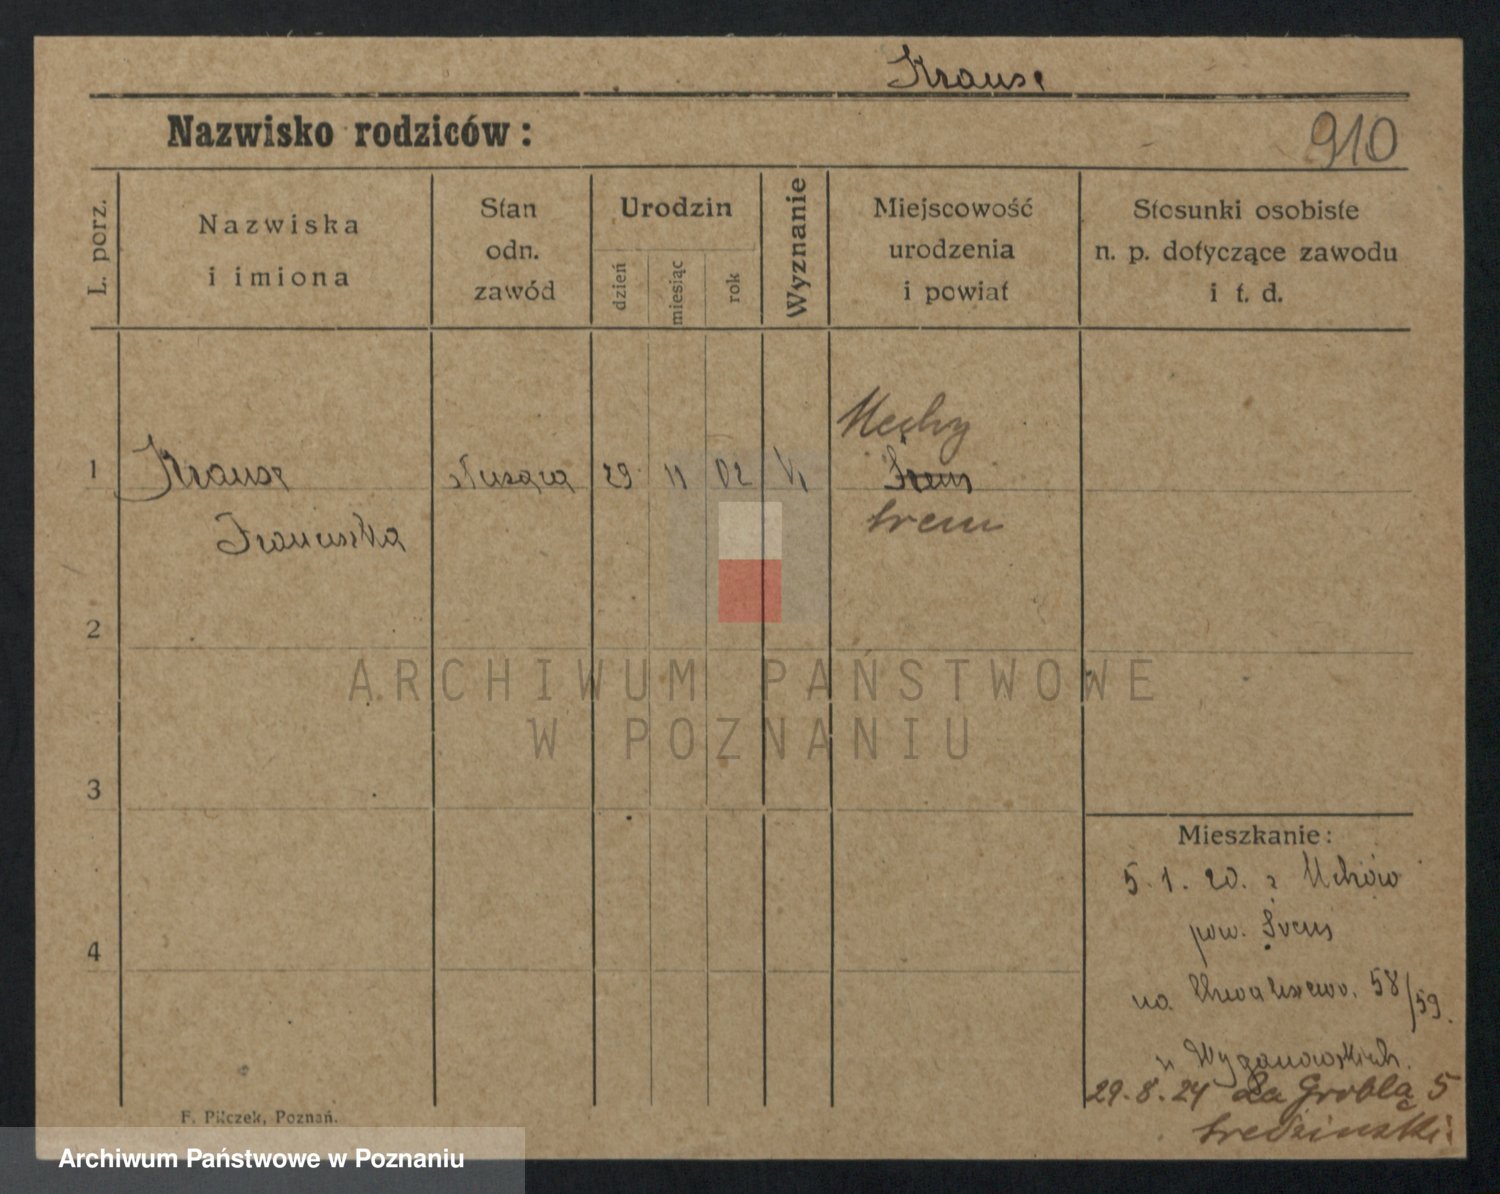 Krause
Nazwisko rodziców:
910
L. porz.
Nazwiska
i imiona
Stan
odn.
zawód
Urodzin
dzień
miesiąc
rok
Wyznanie
Miejscowość
urodzenia
i powiat
Stosunki osobiste
n. p. dotyczące zawodu
i t. d.
Mechy
1
Krause
służąca
29
11
02
Śrem
Śrem
Franciszka
2
ARCHIWUM PAŃSTWOWE
W POZNANIU
3
Mieszkanie:
5. 1. 20. z
pow. Śrem
4
na Chwaliszewo. 58/59.
u Wyganowskich.
29. 8. 24 Za Groblą 5
F. Pilczek, Poznań.
Archiwum Państwowe w Poznaniu